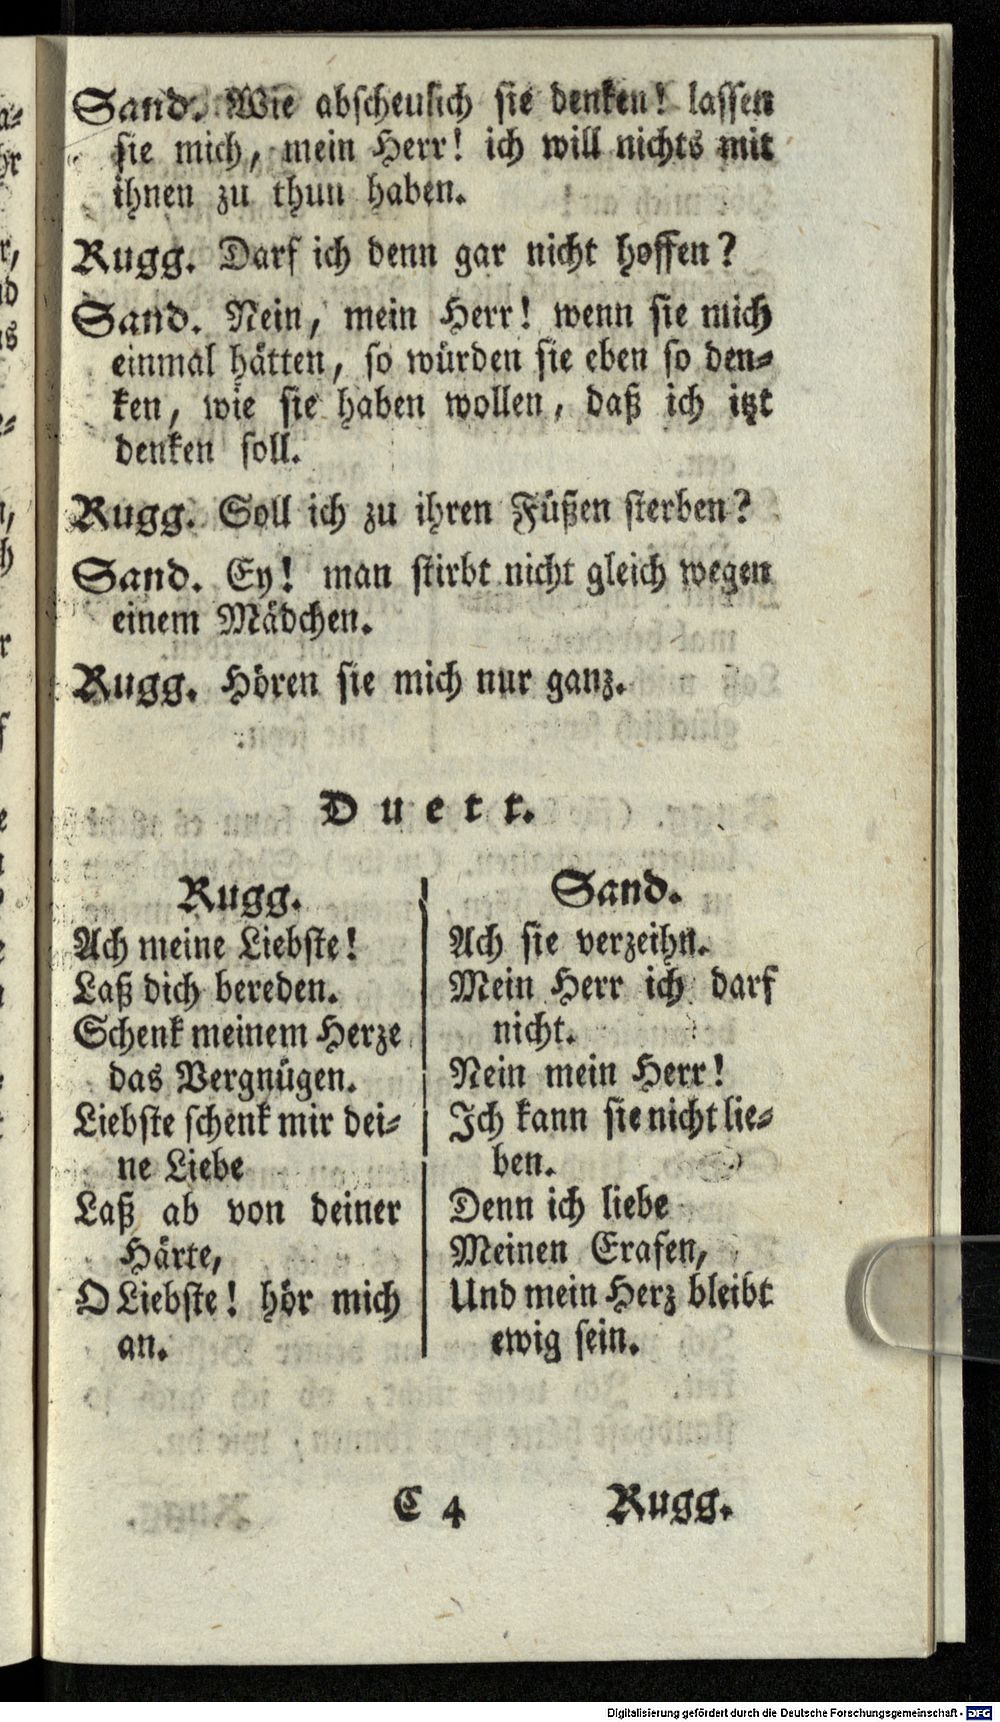 Sand. Wie abscheulich sie denken! lassen
sie mich, mein Herr! ich will nichts mit
ihnen zu thun haben.
Rugg. Darf ich denn gar nicht hoffen?
Sand. Nein, mein Herr! wenn sie mich
einmal hätten, so würden sie eben so den-
ken, wie sie haben wollen, daß ich itzt
denken soll.
Rugg. Soll ich zu ihren Füßen sterben?
Sand. Ey! man stirbt nicht gleich wegen
einem Mädchen.
Rugg. Hören sie mich nur ganz.
Duett.
Rugg.
Ach meine Liebste!
Laß dich bereden.
Schenk meinem Herze
das Vergnügen.
Liebste schenk mir dei-
ne Liebe
Laß ab von deiner
Härte,
O Liebste! hör mich
an.
Sand.
Ach sie verzeihn.
Mein Herr ich darf
nicht.
Nein mein Herr!
Ich kann sie nicht lie-
ben.
Denn ich liebe
Meinen Erasen,
Und mein Herz bleibt
ewig sein.
C 4
Rugg.
Digitalisierung gefördert durch die Deutsche Forschungsgemeinschaft - DFG